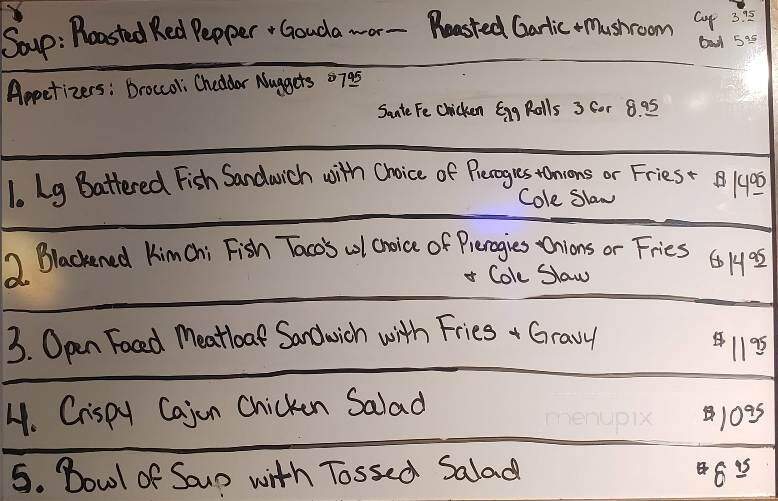 Soup: Roasted Red Pepper + Gouda -or- Roasted Garlic + Mushroom Cup 3.95
Bowl 5.95
Appetizers: Broccoli Cheddar Nuggets $7.95
Sante Fe Chicken Egg Rolls 3 for 8.95
1. Lg Battered Fish Sandwich with Choice of Pierogies + Onions or Fries + $14.95
Cole Slaw
2. Blackened Kim Chi Fish Taco's w/ Choice of Pierogies + Onions or Fries $14.95
+ Cole Slaw
3. Open Faced Meatloaf Sandwich with Fries + Gravy $11.95
4. Crispy Cajun Chicken Salad $10.95
menupix
5. Bowl of Soup with Tossed Salad $8.95